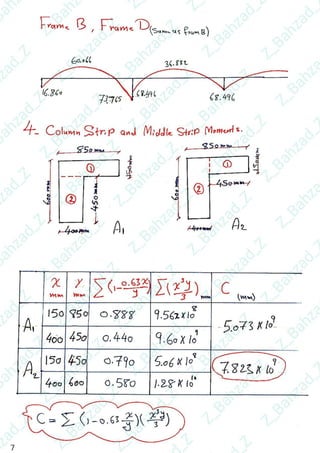 Frame B, Frame D (Same as Frame B)
60.066
36.882
16.860
72.765
68.496
68.496
4- Column Strip and Middle Strip Moments.
850mm
850mm
①
①
150mm
150mm
600mm
②
450mm
600mm
②
450mm
400mm
A₁
400mm
A₂
x mm
y mm
Σ(1-0.63x/y)
Σ(x³y/3) mm
C (mm)
A₁
150 850 0.888 9.562x10⁸
5.073 x10⁹
400 450 0.440 9.60x10⁹
A₂
150 450 0.790 5.06x10⁸
7.823x10⁹
400 600 0.580 1.28x10¹⁰
C = Σ (1-0.63 x/y)(x³y/3)
7
Z_Bahzad_Z